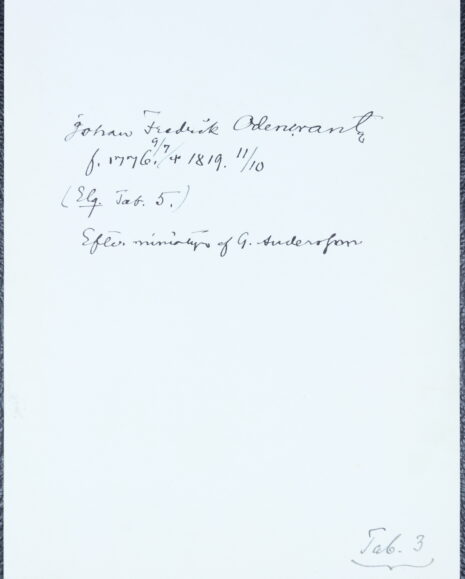 Johan Fredrik Odencrantz
f. 1776 9/7 + 1819. 11/10
(Elg. Tab. 5.)
Efter miniatyr af G. Andersson
Tab. 3